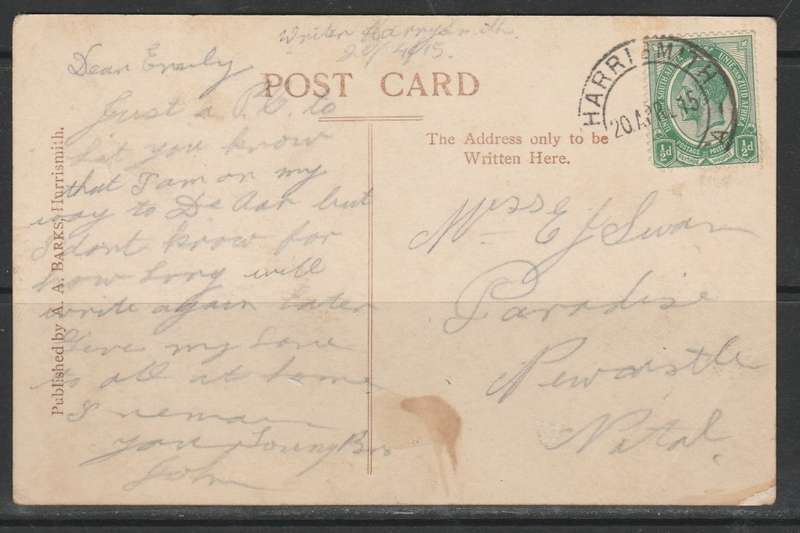 Writen Harrysmith
20/4/15.
Dear Emily
POST CARD
Just a P.C. to
Let you know
that I am on my
way to De Aar but
I dont know for
how long will
write again later
Give my Love
to all at home
I remain
your Loving Bro
John
Published by A. A. BARKS, Harrismith.
The Address only to be
Written Here.
Miss E J Swan
Paradise
Newcastle
Natal
HARRISMITH
20 APR 15
½d ½d
POSTAGE